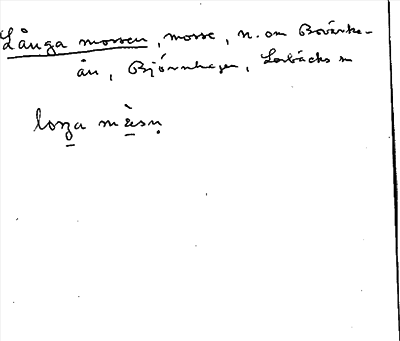 Långa mossen, mosse, n. om Bovänke-
ån, Björnhagen, Lerbäcks sn
loŋa mòsn̥